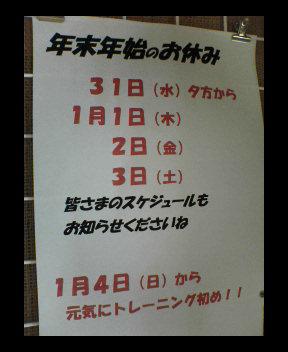 年末年始のお休み
31日（水）夕方から
1月1日（木）
2日（金）
3日（土）
皆さまのスケジュールも
お知らせくださいね
1月4日（日）から
元気にトレーニング初め！！